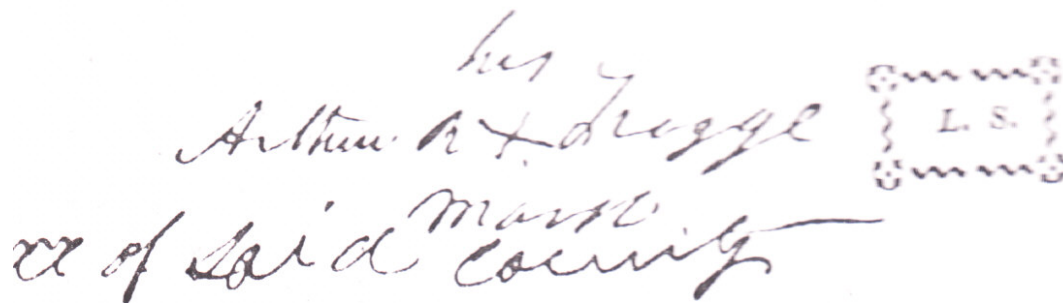 his
Arthur R X Scragge L. S.
mark
of said County